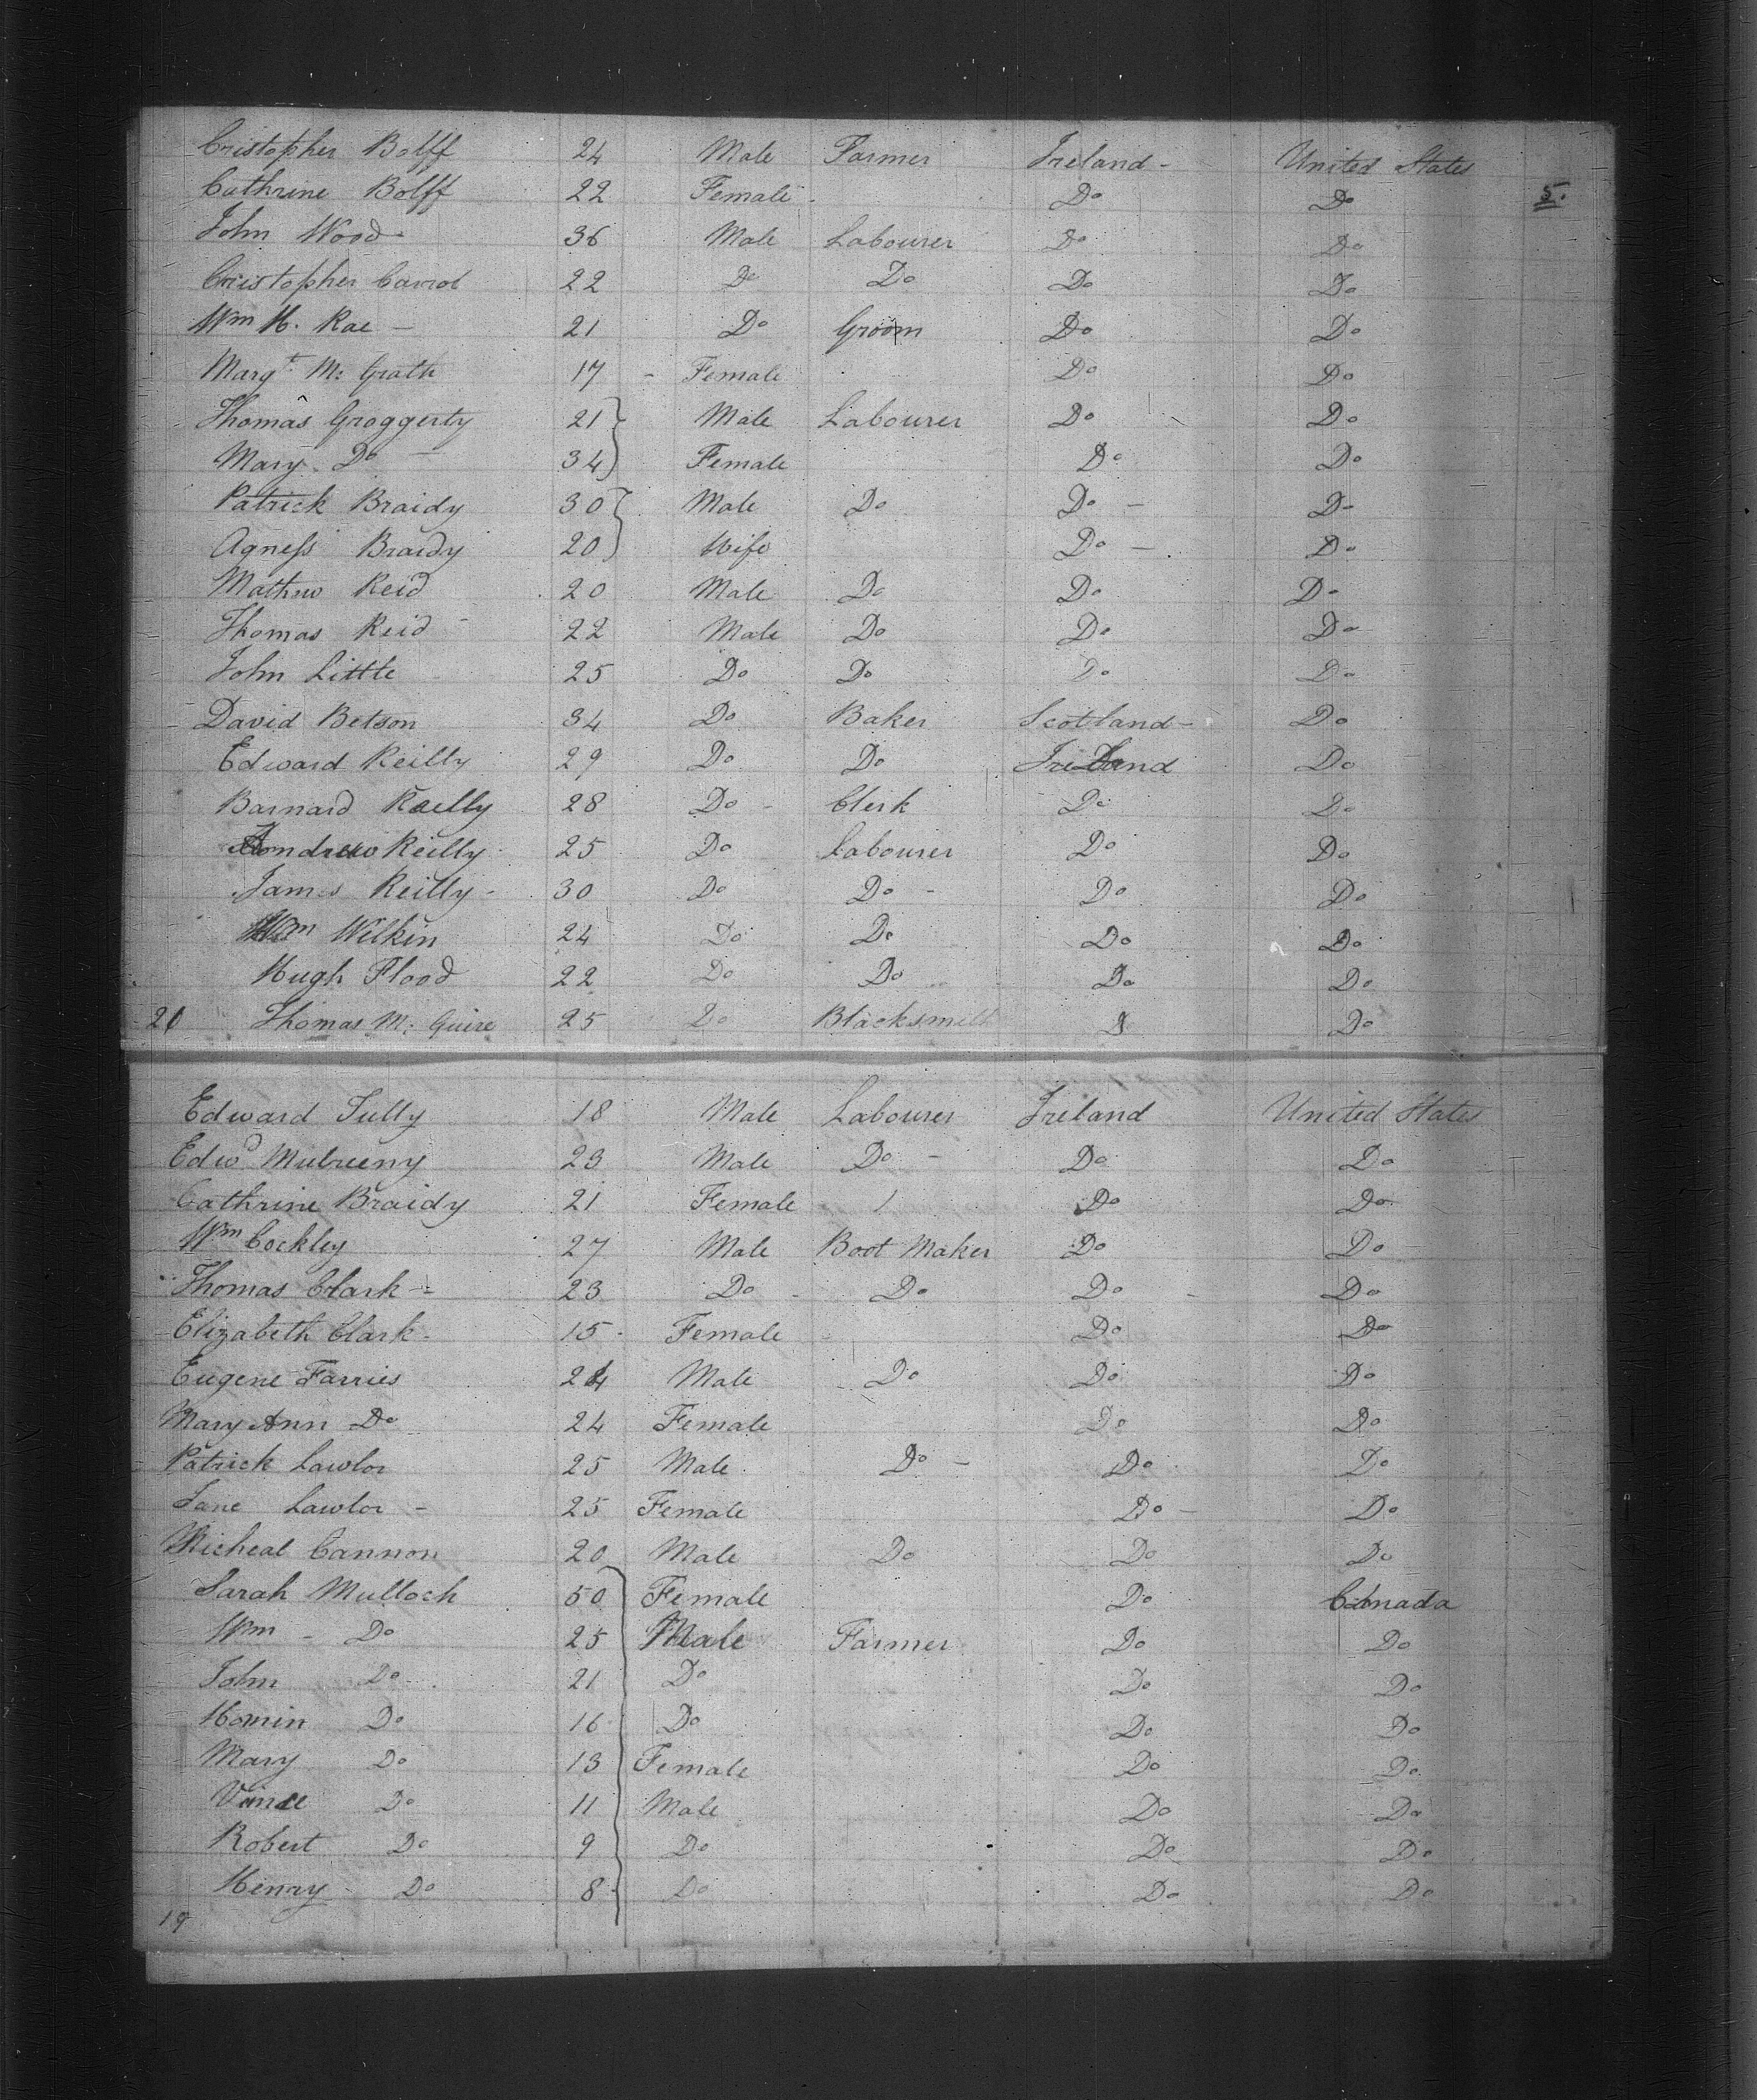 Cristopher Bolff 24 Male Farmer Ireland - United States
Cathrine Bolff 22 Female Do Do 5.
John Wood 36 Male Labourer Do Do
Cristopher Carrol 22 Do Do Do Do
Wm H. Rae - 21 Do Groom Do Do
Margt Mc Grath 17 - Female Do Do
Thomas Groggerty 21 Male Labourer Do Do
Mary Do - 34 Female Do Do
Patrick Braidy 30 Male Do Do - Do
Agness Braidy 20 Wife Do - Do
Mathew Reid 20 Male Do Do Do
Thomas Reid - 22 Male Do Do Do
John Little 25 Do Do Do Do
David Betson 34 Do Baker Scotland - Do
Edward Reilly 29 Do Do Ireland Do
Barnard Raelly 28 Do - Clerk Do Do
Andrew Reilly 25 Do Labourer Do Do
James Reilly - 30 Do Do - Do Do
Wm Wilkin 24 Do Do Do Do
Hugh Flood 22 Do Do Do Do
21 Thomas Mc Guire 25 Do Blacksmith Do
Edward Tully 18 Male Labourer Ireland United States
Edwd Mulreeny 23 Male Do - Do Do
Cathrine Braidy 21 Female / Do Do
Wm Cockley 27 Male Boot Maker Do Do
Thomas Clark - 23 Do - Do Do - Do
Elizabeth Clark - 15 - Female Do Do
Eugene Farries 24 Male Do Do Do
Mary Ann Do 24 Female Do Do
Patrick Lawlor 25 Male Do - Do Do
Jane Lawlor - 25 Female Do - Do
Micheal Cannon 20 Male Do Do Do
Sarah Mulloch 50 Female Do Canada
Wm - Do 25 Male Farmer Do Do
John Do 21 Do Do Do
Do 16 Do Do Do
Mary Do 13 Female Do Do
Do 11 Male Do Do
Robert Do 9 Do Do Do
Henry Do 8 Do Do Do
19